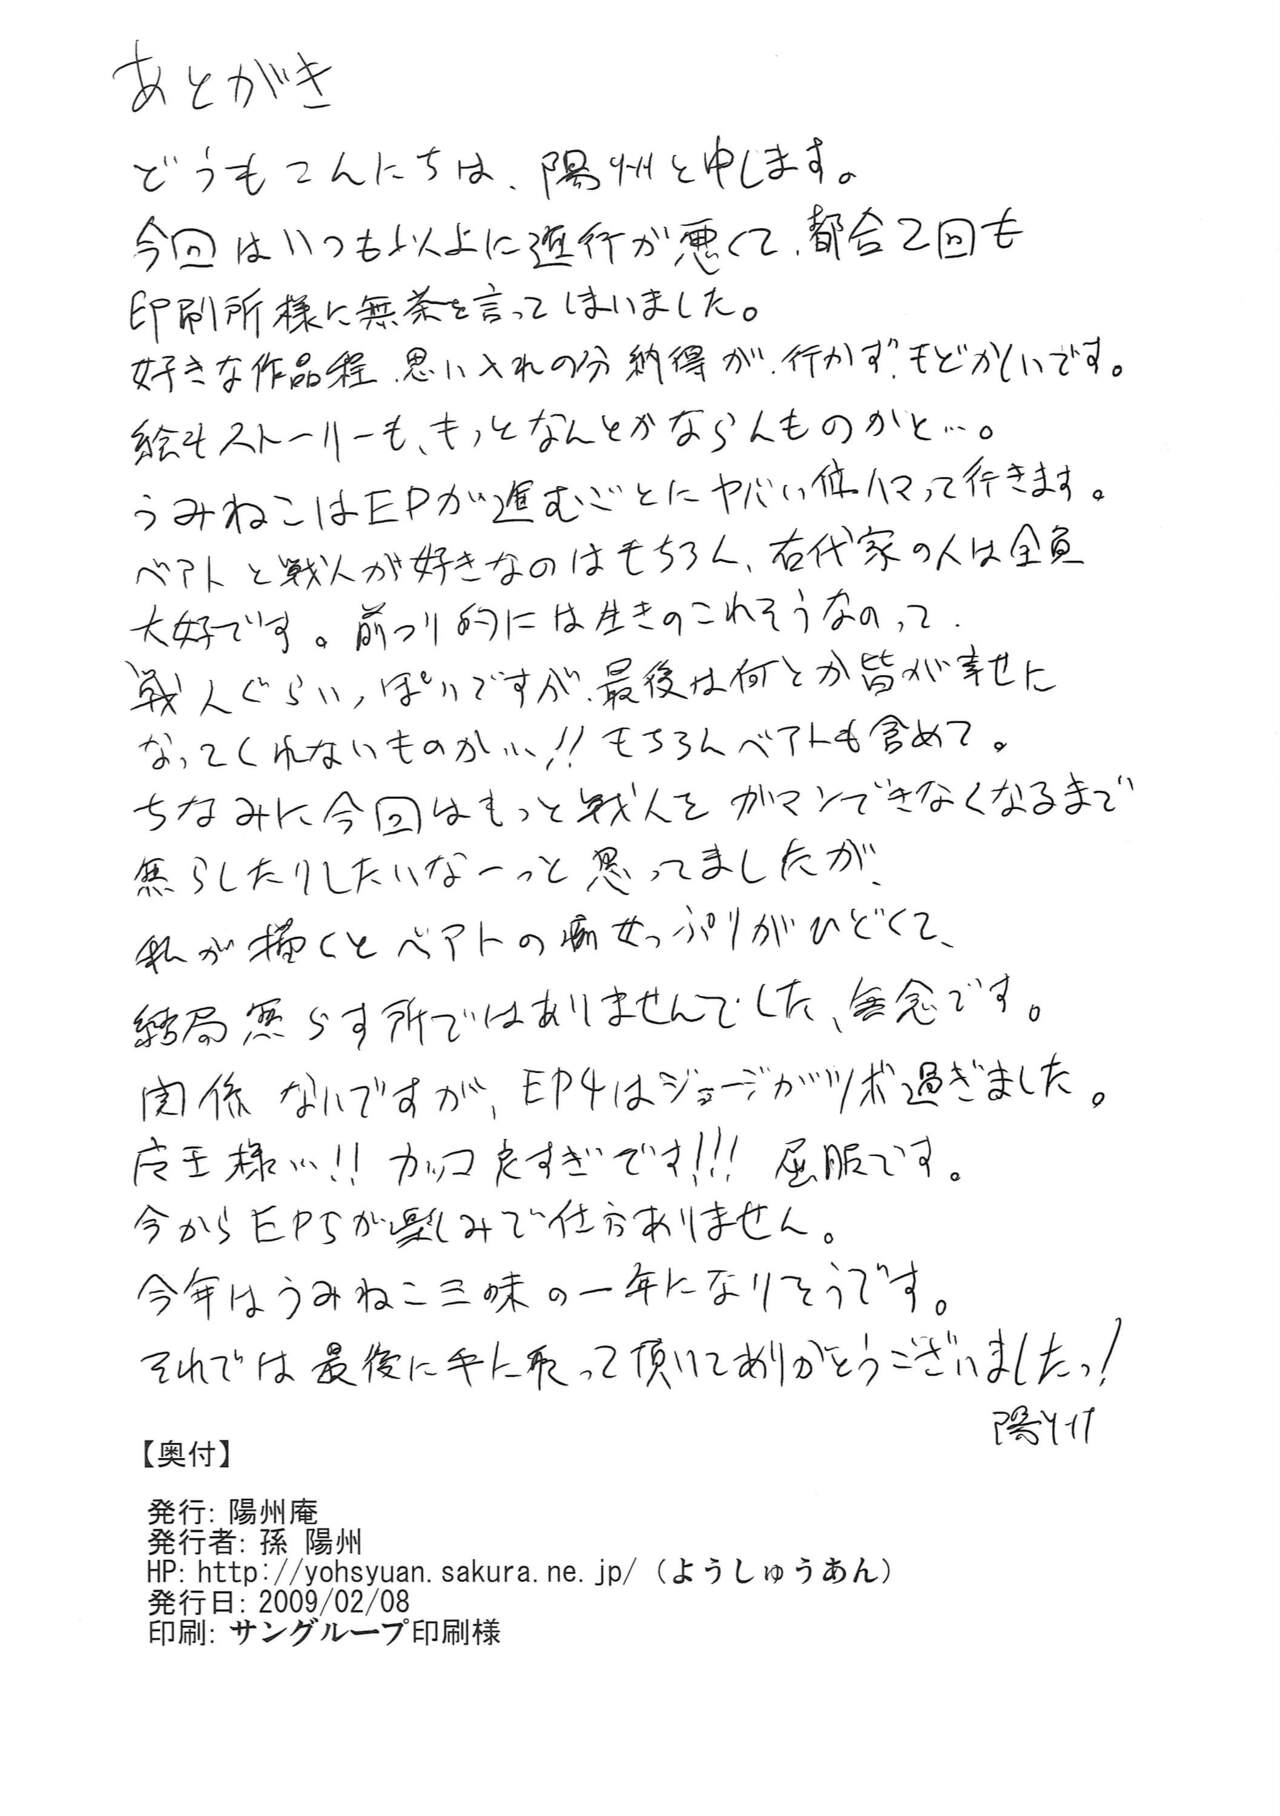 あとがき
どうもこんにちは、陽州と申します。
今回はいつも以上に進行が悪くて、都合2回も
印刷所様に無茶を言ってしまいました。
好きな作品程、思い入れの分納得が行かず、もどかしいです。
絵もストーリーも、もっとなんとかならんものかと…。
うみねこはEPが進むごとにヤバい位ハマって行きます。
ベアトと戦人が好きなのはもちろん、右代家の人は全員
大好です。前フリ的には生きのこれそうなのって
戦人ぐらいっぽいですが、最後は何とか皆が幸せに
なってくれないものか…!!もちろんベアトも含めて。
ちなみに今回はもっと戦人をガマンできなくなるまで
焦らしたりしたいなーっと思ってましたが、
私が描くとベアトの痴女っぷりがひどくて、
結局焦らす所ではありませんでした、無念です。
関係ないですが、EP4はジョージがツボ過ぎました。
店王様…!!カッコ良すぎです!!!屈服です。
今からEP5が楽しみで仕方ありません。
今年はうみねこ三昧の一年になりそうです。
それでは最後に手に取って頂いてありがとうございましたっ!
陽州
【奥付】
発行: 陽州庵
発行者: 孫 陽州
HP: http://yohsyuan.sakura.ne.jp/（ようしゅうあん）
発行日: 2009/02/08
印刷: サングループ印刷様